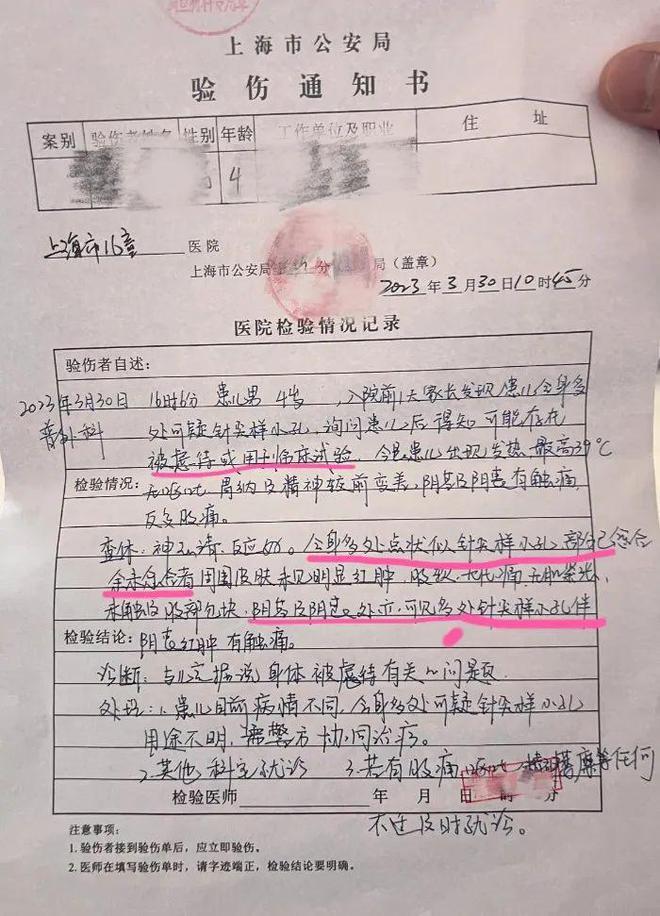 上海市公安局
验伤通知书
案别 验伤者姓名 性别 年龄 工作单位及职业 住址
4
上海市儿童 医院
上海市公安局 分 局（盖章）
2023年3月30日10时45分
医院检验情况记录
验伤者自述：
2023年3月30日 16时6分 患儿男 4岁 ，入院前1天家长发现患儿全身多
普外科 处可疑针尖样小孔，询问患儿后得知可能存在
被虐待或用于临床试验。今患儿出现发热，最高39℃
检验情况： 无呕吐，胃纳及精神较前变差，阴茎及阴囊有触痛，
反复腹痛。
查体：神志清，反应好。全身多处点状似针尖样小孔，部分已愈合
余未愈合者周围皮肤未见明显红肿，腹软，无压痛，无肌紧张，
未触及腹部包块，阴茎及阴囊处亦可见多处针尖样小孔伴
检验结论： 阴囊红肿有触痛。
诊断：身体被虐待有关的问题
处理：1.患儿目前病情不同，全身多处可疑针尖样小孔
用途不明，需警方协同治疗。
2.其他科室就诊 3.若有腹痛 呕吐 等任何
检验医师 年 月 日 时 分
不适及时就诊。
注意事项：
1. 验伤者接到验伤单后，应立即验伤。
2. 医师在填写验伤单时，请字迹端正，检验结论要明确。